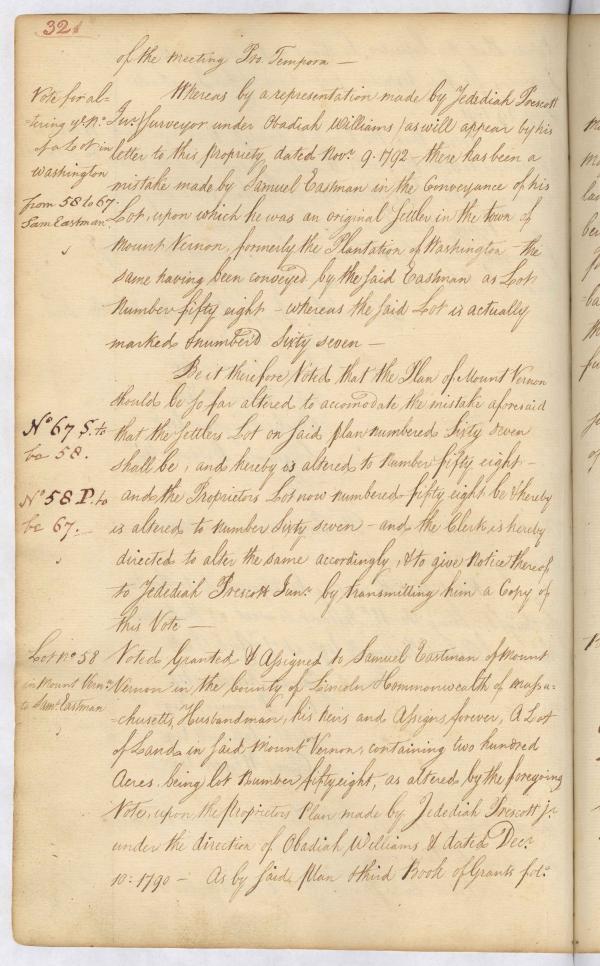 32.
of the meeting Pro. Tempora —
Vote for al-
-tering ye No.
of a Lot in
Washington
from 58 to 67.
Sam Eastman.
Whereas by a representation made by Jedediah Prescott
Junr. Surveyor under Obadiah Williams / as will appear by his
letter to this propriety, dated Novr. 9. 1792 – there has been a
mistake made by Samuel Eastman in the Conveyance of his
Lot, upon which he was an original Settler in the town of
Mount Vernon, formerly the Plantation of Washington – the
same having been conveyed by the said Eastman as Lot
Number fifty eight – whereas the said Lot is actually
marked & numberd Sixty seven —
Be it therefore Voted that the Plan of Mount Vernon
should be so far altered to accomodate the mistake aforesaid
No 67 S. to
be 58.
that the Settlers Lot on said plan numbered Sixty seven
shall be, and hereby is altered to Number fifty eight –
No 58 P. to
be 67.
and the Proprietors Lot now numbered fifty eight be & hereby
is altered to number Sixty seven – and the Clerk is hereby
directed to alter the same accordingly, & to give Notice thereof
to Jedediah Prescott Junr. by transmitting him a Copy of
this Vote —
Lot No. 58
in Mount Vernn.
to Saml. Eastman
Voted Granted & Assigned to Samuel Eastman of Mount
Vernon in the County of Lincoln & Commonwealth of Massa-
-chusetts, Husbandman, his heirs and Assigns forever, A Lot
of Land in said Mount Vernon, containing two hundred
Acres. being lot Number fifty eight, as altered by the foregoing
Vote, upon the proprietors Plan made by Jedediah Prescott jr.
under the direction of Obadiah Williams & dated Decr.
10: 1790 – As by said plan & third Book of Grants fol.